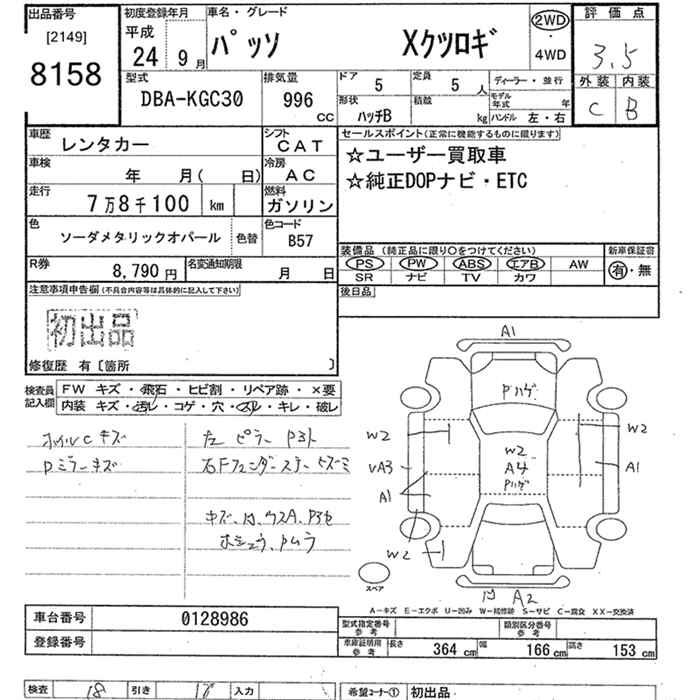 出品番号
[2149]
8158
初度登録年月
平成
24 9月
車名・グレード
パッソ Xクツロギ
2WD
4WD
評価点
3.5
外装 内装
C B
型式
DBA-KGC30
排気量
996 cc
ドア
5
定員
5 人
形状
ハッチB
積載
kg
ディーラー・並行
モデル年式 年
ハンドル 左・右
車歴
レンタカー
シフト
CAT
車検
年 月( 日)
冷房
AC
走行
7万8千100 km
燃料
ガソリン
色
ソーダメタリックオパール
色替
色コード
B57
R券
8,790円
名変通知期限
月 日
セールスポイント(正常に機能するものに限ります)
☆ユーザー買取車
☆純正DOPナビ・ETC
装備品(純正品に限り○をつけてください)
新車保証書
PS PW ABS エアB AW
SR ナビ TV カワ
有・無
後日品
注意事項申告欄(不具合内容等は具体的に記入して下さい)
初出品
修復歴 有〔箇所 〕
検査員記入欄
FW キズ・飛石・ヒビ割・リペア跡・×要
内装 キズ・汚レ・コゲ・穴・スレ・キレ・破レ
ホイルCキズ
Dミラーキズ
左ピラー
キズ、凹、ウスA、
A1
Pハゲ
W2
W2
W2
A4
Pハゲ
VA3
A1
A1
W2
凹 A2
スペア
A-キズ E-エクボ U-凹み W-補修跡 S-サビ C-腐食 XX-交換済
車台番号
0128986
登録番号
型式指定番号 参考
類別区分番号 参考
車庫証明用 参考
長さ 364 cm 幅 166 cm 高さ 153 cm
検査 18 引き 入力
希望コーナー① 初出品